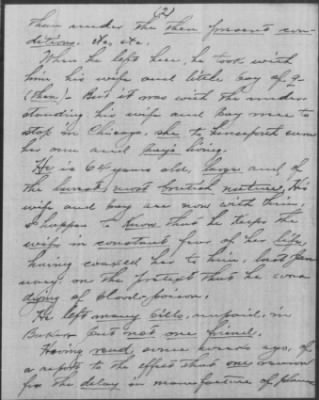 (2)
than under the then present con-
ditions. Etc, etc.
When he left here, he took with
him his wife and little boy of 9-
(then). But it was with the under-
standing his wife and boy were to
stop in Chicago, she to
his own and boy's living.
He is 64 years old, large and of
the most brutish nature, his
wife and boy are now with him,
I happen to know that he keeps the
wife in constant fear of her life,
having coaxed her to him, last Jan-
uary, on the pretext that he was
dying of blood poison.
He left many bills, unpaid, in
but not one friend.
Having read, some ago, of
a report to the effect that one reason
for the delay in manufacture of planes